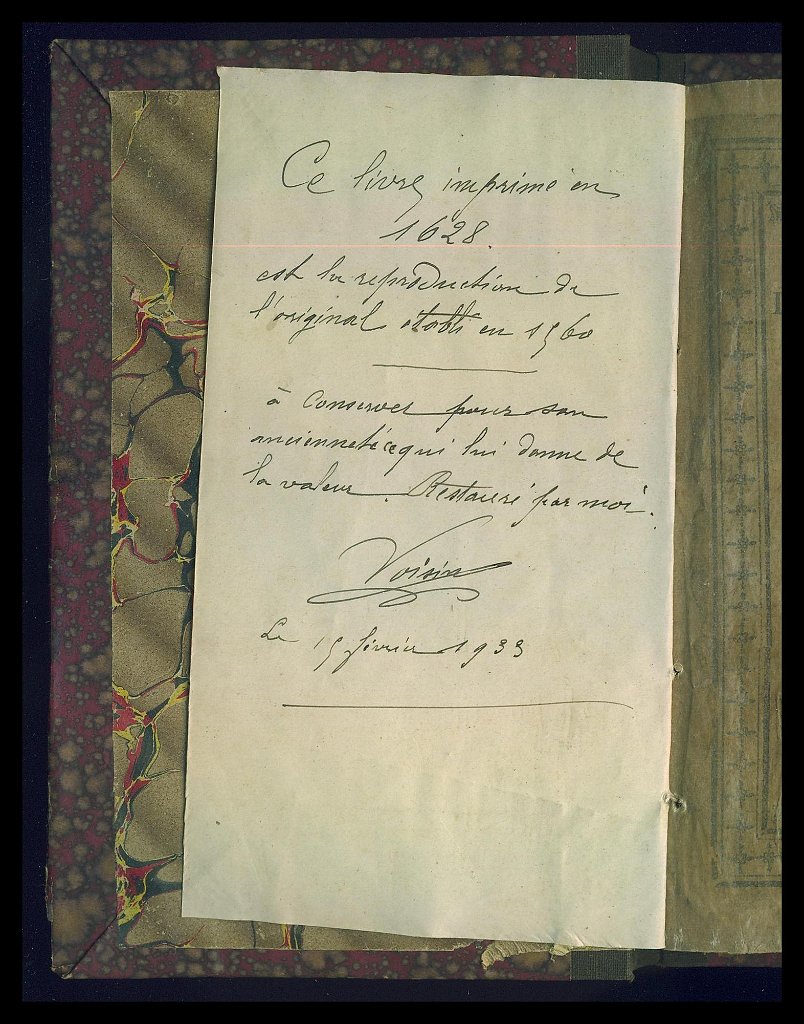 Ce livre imprimé en
1628.
est la reproduction de
l'original établi en 1560
à conserver pour son
ancienneté ce qui lui donne de
la valeur. Restauré par moi.
Voisin
Le 15 février 1933